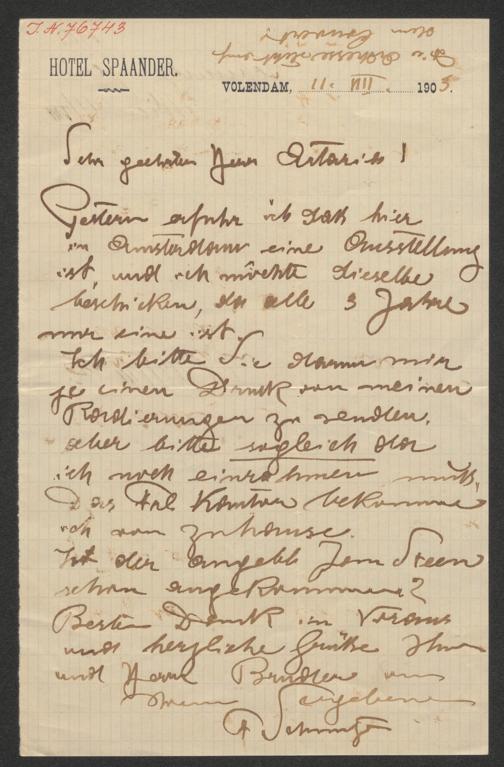 I.N. 76743
Die Adresse steht auf
dem Couvert
HOTEL SPAANDER.
VOLENDAM, 11. VIII. 1903.
Sehr geehrter Herr Artaria!
Gestern erfuhr ich daß hier
in Amsterdam eine Ausstellung
ist, und ich möchte dieselbe
beschicken, da alle 3 Jahre
nur eine ist.
Ich bitte Sie darum mir
je einen Druck von meinen
Radierungen zu senden.
aber bitte sogleich da
ich noch einrahmen muß.
Das Frl Kantor bekomme
ich von zuhause.
Ist der angebl Jan Steen
schon angekommen?
Besten Dank im Voraus
und herzliche Grüße Ihnen
und Herrn Bruder von
Ihrem Ergebenen